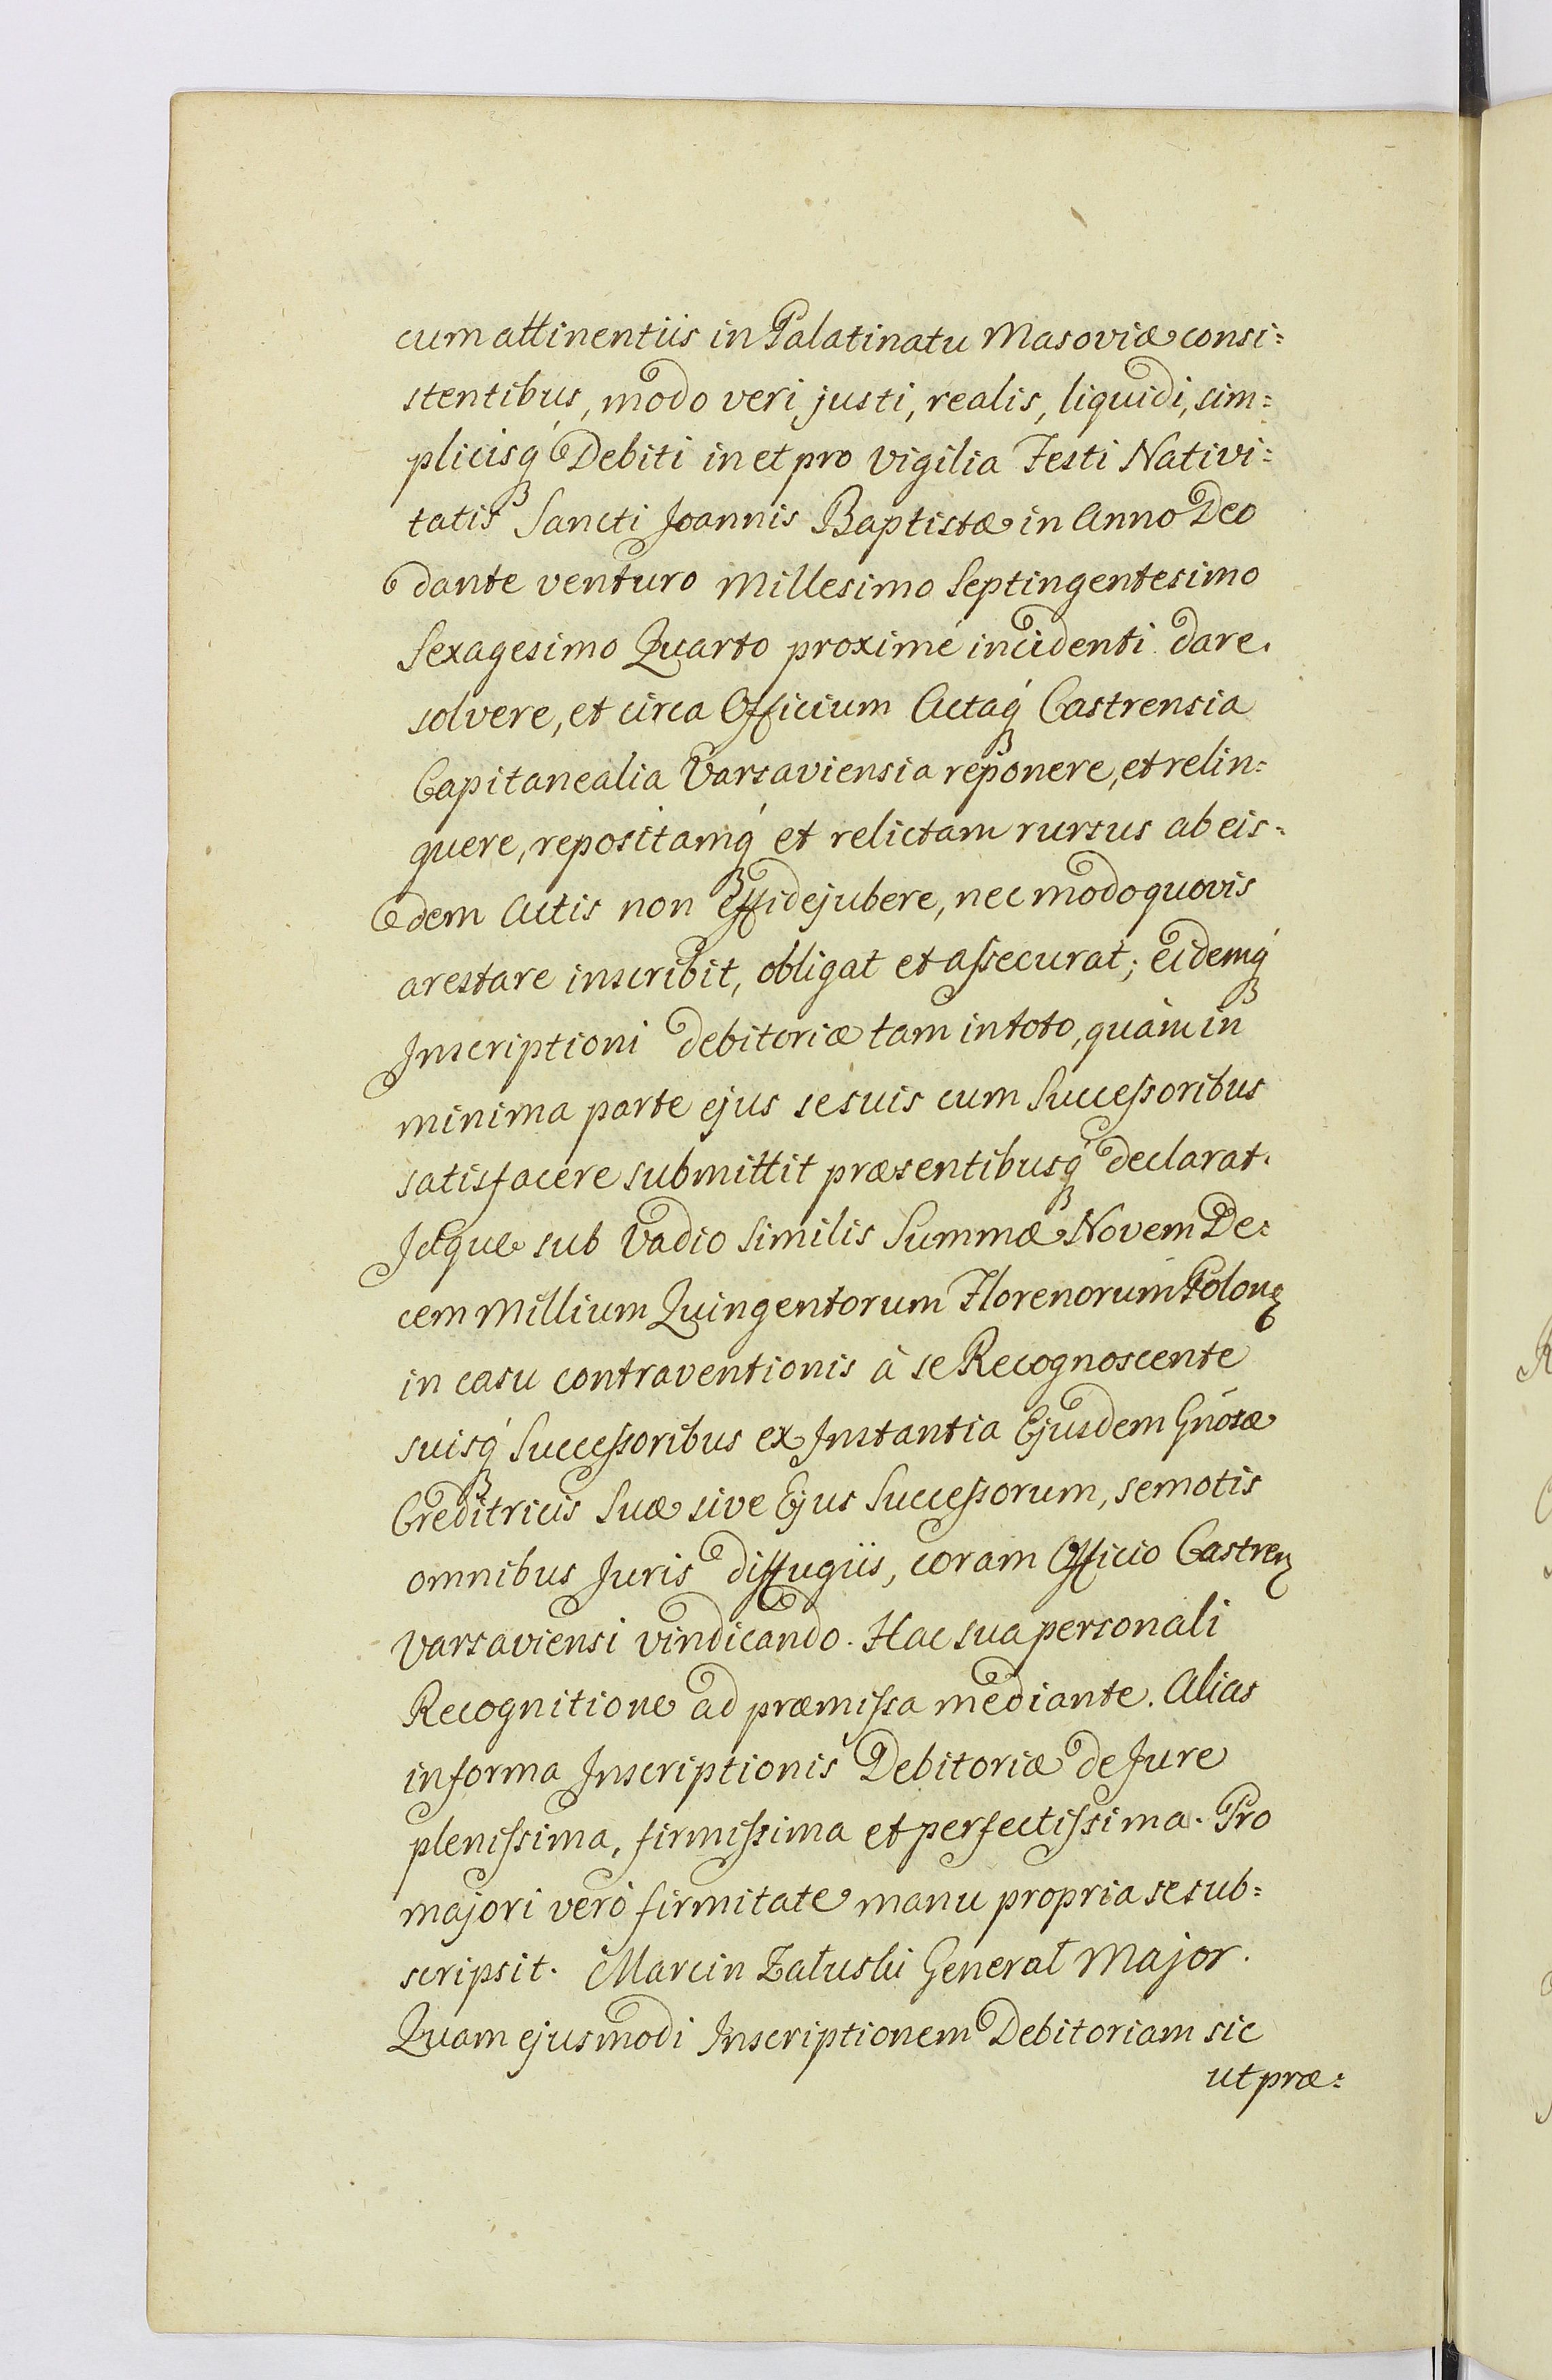 cum attinentiis in Palatinatu Masoviæ consi=
stentibus, modo veri, justi, realis, liquidi, sim=
plicisq́ꝫ Debiti in et pro Vigilia Festi Nativi=
tatis Sancti Joannis Baptistæ in Anno Deo
dante venturo Millesimo Septingentesimo
Sexagesimo Quarto proximé incidenti dare.
solvere, et circa Officium Actaq́ꝫ Castrensia
Capitanealia Varsaviensia reponere, et relin=
quere, repositamq́ꝫ et relictam rursus ab eis=
dem Actis non effidejubere, nec modoquovis
arestare inscribit, obligat et assecurat; eidemq́ꝫ
Inscriptioni debitoriæ tam in toto, quàm in
minima parte ejus se suis cum Successoribus
satisfacere submittit præsentibusq́ꝫ declarat.
Idque sub Vadio similis Summæ Novem De=
cem Millium Quingentorum Florenorum Polonꝫ
in casu contraventionis à se Recognoscente
suisq́ꝫ Successoribus ex Instantia Ejusdem Gńosæ
Creditricis Suæ sive Ejus Successorum, semotis
omnibus Juris diffugiis, coram Officio Castrenꝫ
Varsaviensi vindicando. Hac sua personali
Recognitione ad præmissa mediante. Alias
in forma Inscriptionis Debitoriæ de Jure
plenissima, firmissima et perfectissima. Pro
majori veró firmitate manu propria se sub=
scripsit. Marcin Załuski Generał Major.
Quam ejusmodi Inscriptionem Debitoriam sic
ut præ=